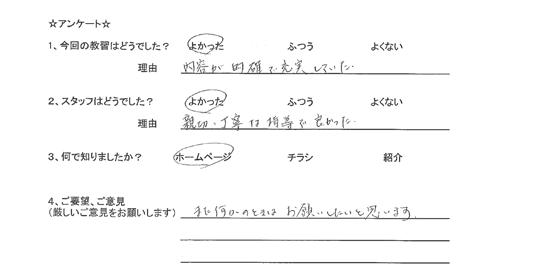 ☆アンケート☆
1、今回の教習はどうでした? よかった ふつう よくない
理由 内容が的確で充実していた。
2、スタッフはどうでした? よかった ふつう よくない
理由 親切・丁寧な指導で良かった。
3、何で知りましたか? ホームページ チラシ 紹介
4、ご要望、ご意見
(厳しいご意見をお願いします) また何かのときは お願いしたいと思います。